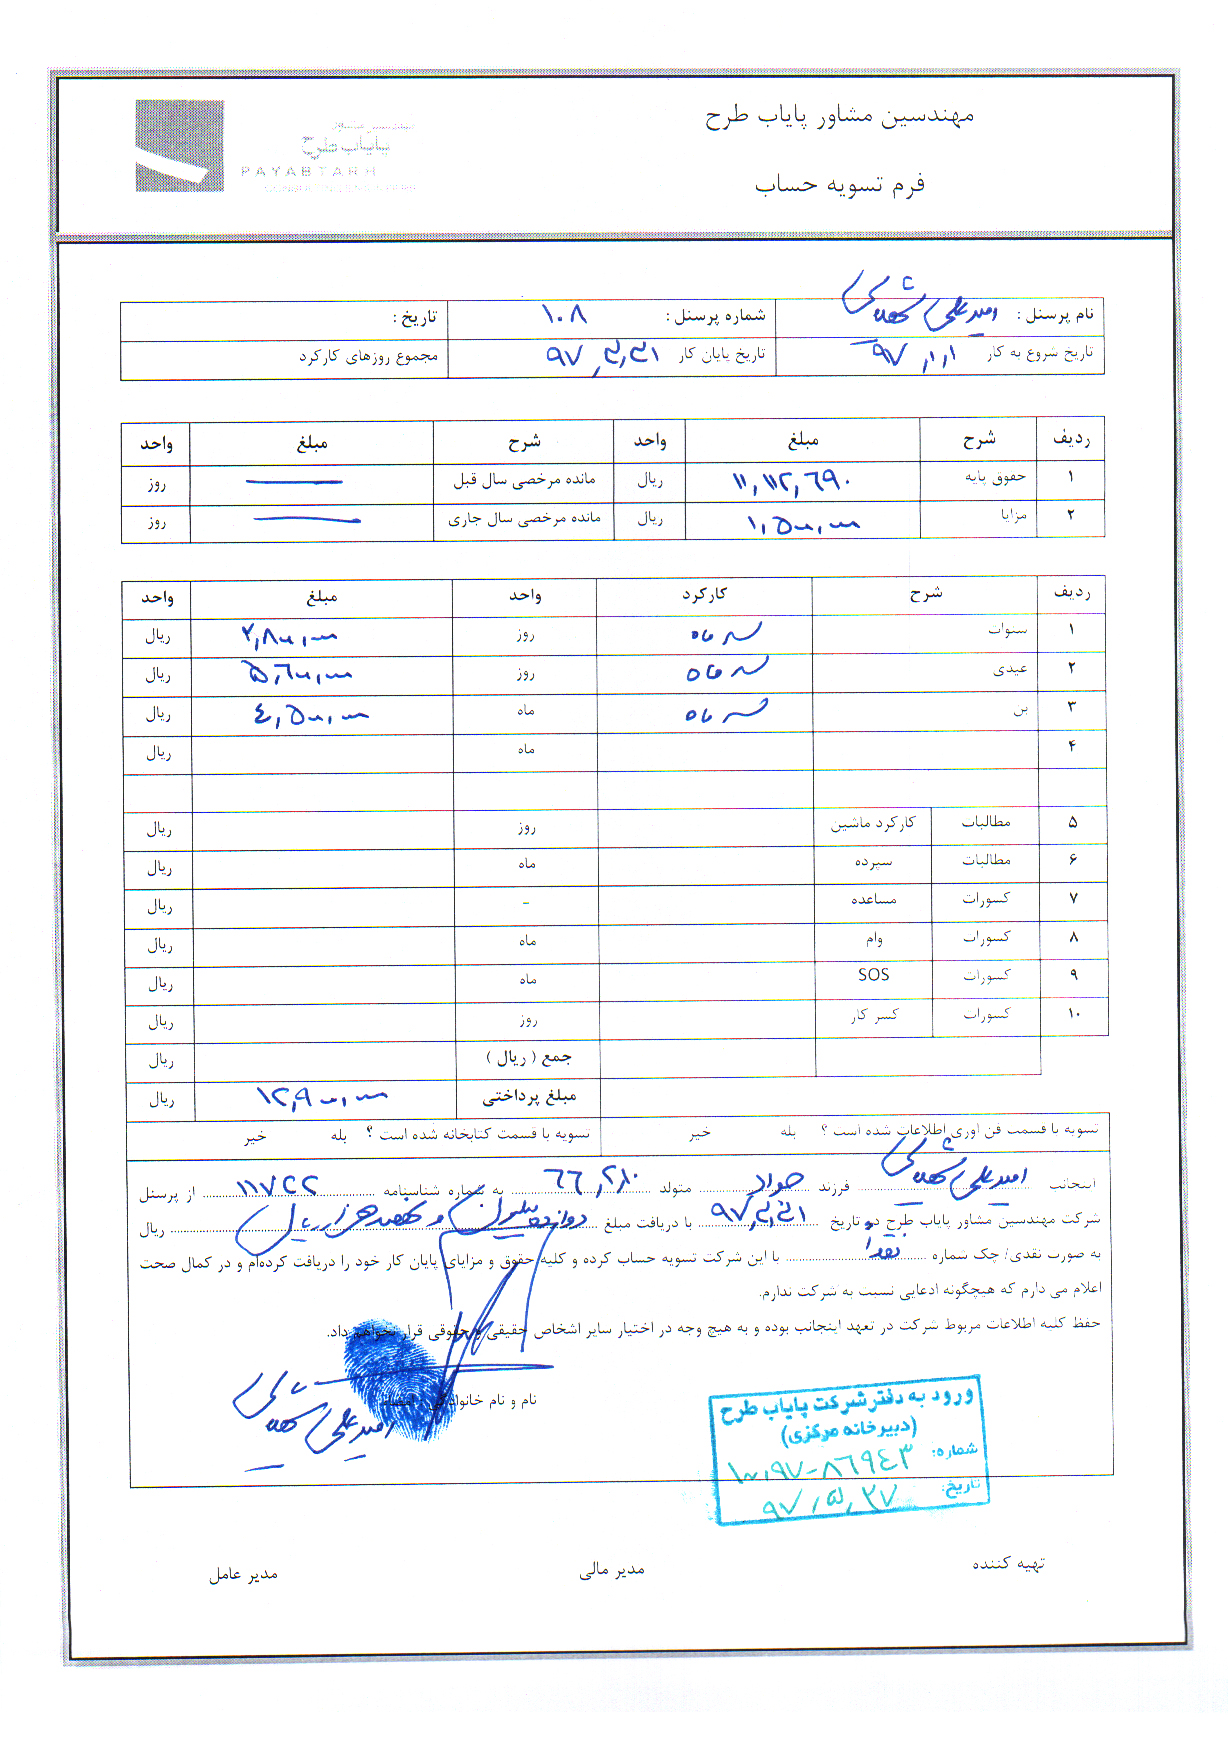 مهندسین مشاور پایاب طرح
فرم تسویه حساب
مهندسین مشاور
پایاب طرح
PAYABTARH
نام پرسنل : امیرعلی شماره پرسنل : ۱۰۸ تاریخ :
تاریخ شروع به کار ۹۷,۱,۱ تاریخ پایان کار ۹۷,۳,۳۱ مجموع روزهای کارکرد
ردیف شرح مبلغ واحد شرح مبلغ واحد
۱ حقوق پایه ۱۱,۱۱۲,۶۹۰ ریال مانده مرخصی سال قبل — روز
۲ مزایا ۱,۵۰۰,۰۰۰ ریال مانده مرخصی سال جاری — روز
ردیف شرح کارکرد واحد مبلغ واحد
۱ سنوات سه ماه روز ۲,۸۰۰,۰۰۰ ریال
۲ عیدی سه ماه روز ۵,۶۰۰,۰۰۰ ریال
۳ بن سه ماه ماه ۴,۵۰۰,۰۰۰ ریال
۴ ماه ریال
۵ مطالبات کارکرد ماشین روز ریال
۶ مطالبات سپرده ماه ریال
۷ کسورات مساعده - ریال
۸ کسورات وام ماه ریال
۹ کسورات SOS ماه ریال
۱۰ کسورات کسر کار روز ریال
جمع ( ریال ) ریال
مبلغ پرداختی ۱۲,۹۰۰,۰۰۰ ریال
تسویه با قسمت فن آوری اطلاعات شده است ؟ بله خیر تسویه با قسمت کتابخانه شده است ؟ بله خیر
اینجانب امیرعلی فرزند جواد متولد ۶۶,۲,۱۰ به شماره شناسنامه ۱۱۷۲۲ از پرسنل
شرکت مهندسین مشاور پایاب طرح در تاریخ ۹۷,۳,۳۱ با دریافت مبلغ دوازده میلیون و نهصد هزار ریال ریال
به صورت نقدی/ چک شماره نقدا با این شرکت تسویه حساب کرده و کلیه حقوق و مزایای پایان کار خود را دریافت کرده‌ام و در کمال صحت
اعلام می دارم که هیچگونه ادعایی نسبت به شرکت ندارم.
حفظ کلیه اطلاعات مربوط شرکت در تعهد اینجانب بوده و به هیچ وجه در اختیار سایر اشخاص حقیقی و حقوقی قرار نخواهم داد.
نام و نام خانوادگی امضاء
امیرعلی
ورود به دفتر شرکت پایاب طرح
(دبیرخانه مرکزی)
شماره: ۱۰۰,۹۷-۸۶۹۴۳
تاریخ: ۹۷,۵,۲۷
تهیه کننده مدیر مالی مدیر عامل